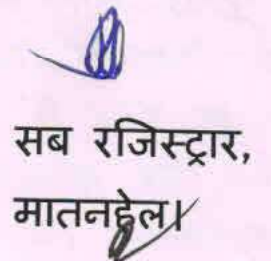 सब रजिस्ट्रार,
मातनहेल।